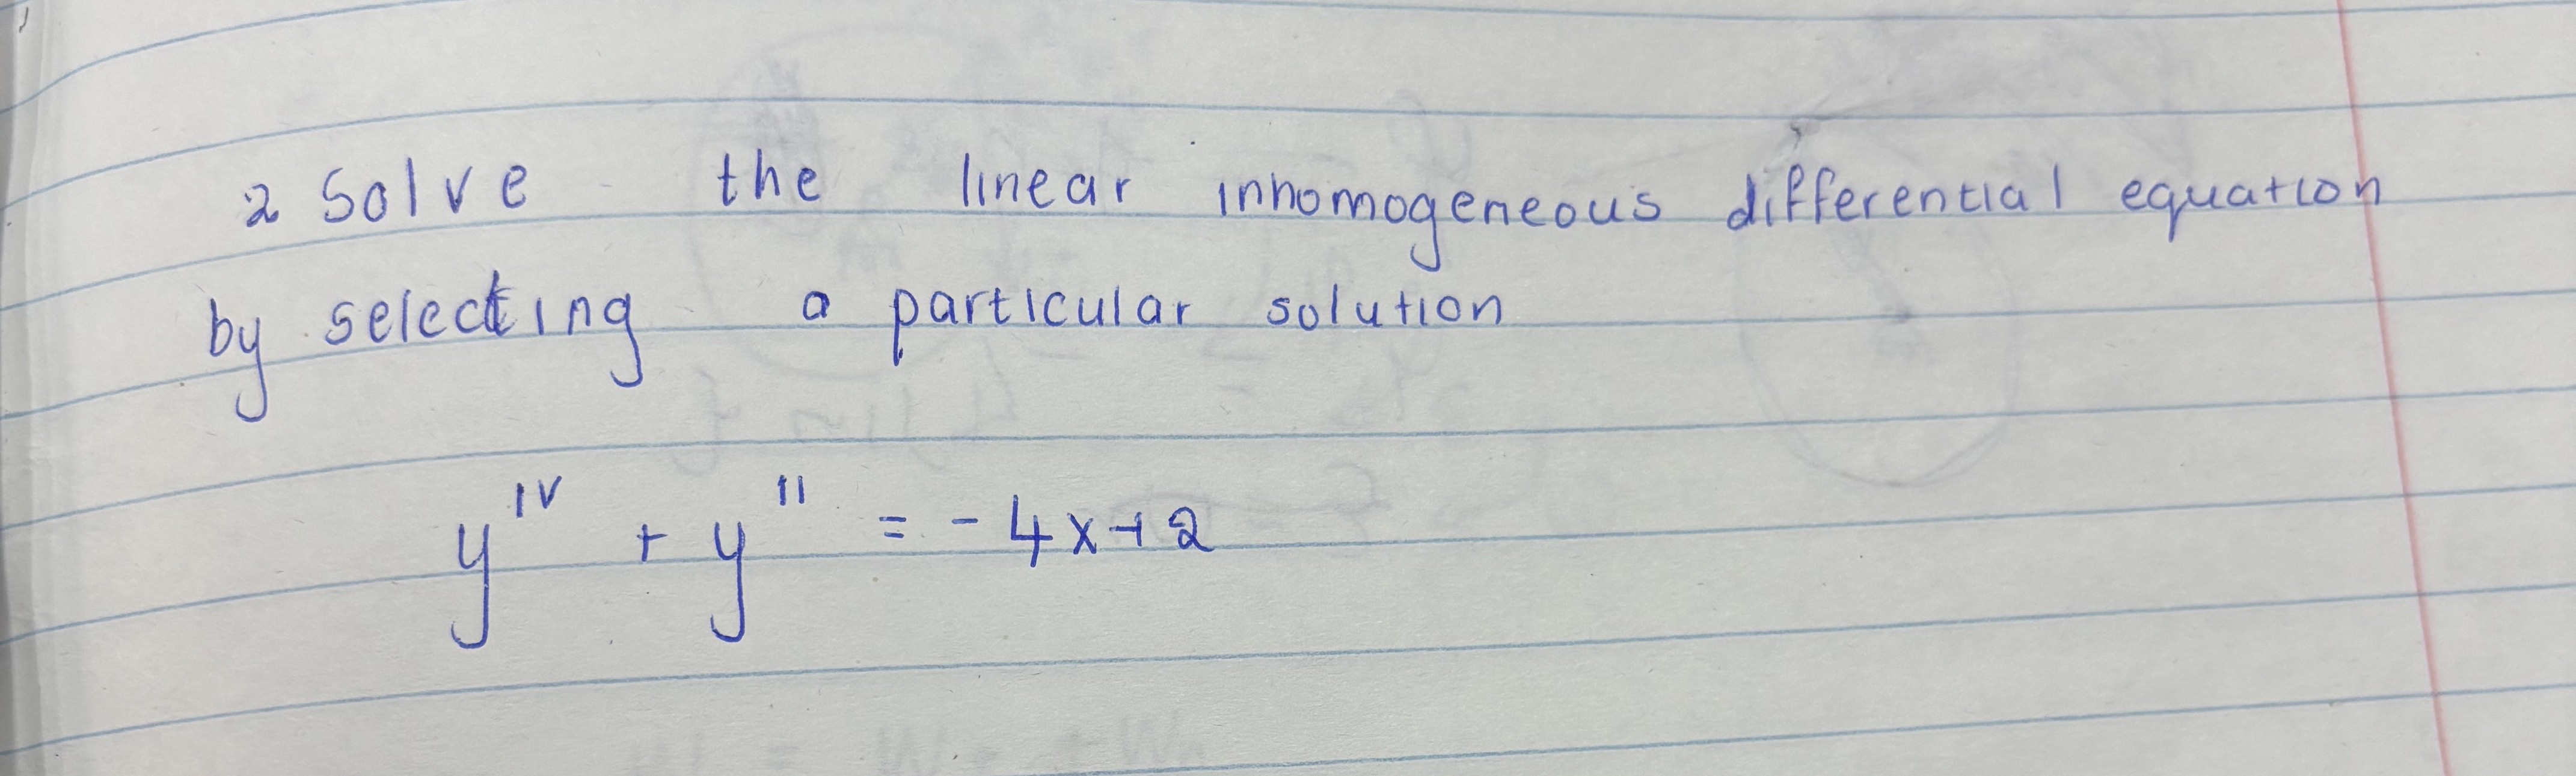 2 Solve the linear inhomogeneous differential equation
by selecting a particular solution
y^IV + y^II = -4x+2